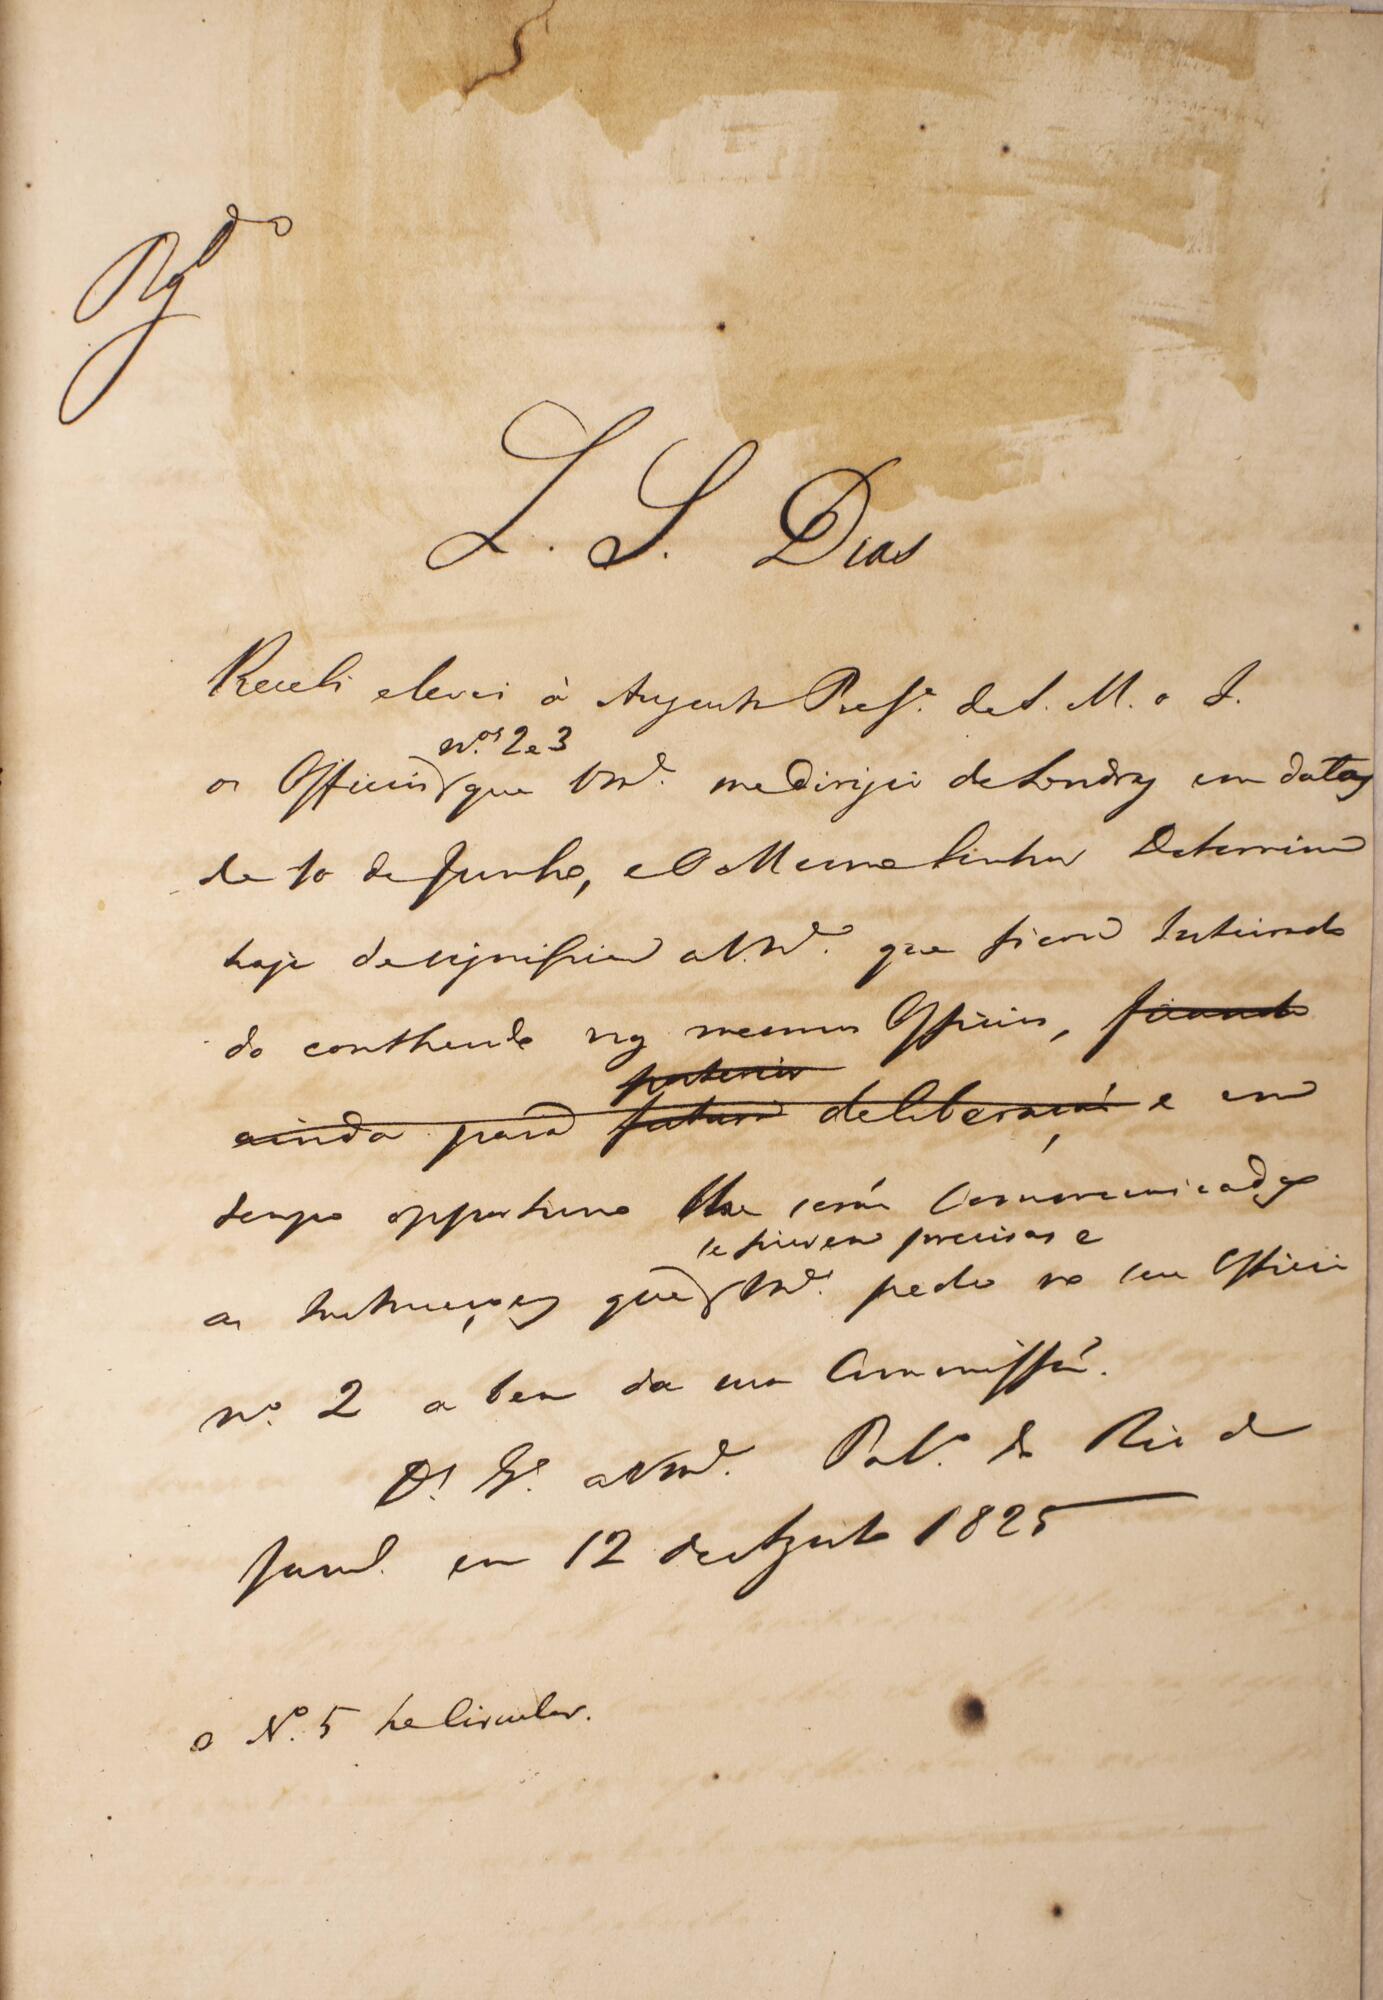 Rg.do
L. S. Dias
Recebi elevei á Augusta Pres.ça de S. M. o I.
os Officios que Vm.ce me dirigio de Londres em datas
n.os 2 e 3
de 10 de Junho, e O Mesmo Senhor Determina
haja de significar a Vm.ce que ficou Inteirado
do contheudo nos mesmos Officios, ficando
posterior
ainda para futura deliberação, e em
tempo opportuno lhe serão Communicadas
as Instrucções que Vm.ce pede no seu Officio
se fizerem precisas e
n.o 2 a bem da sua Commissão.
D.s G.e a Vm.ce Pal.o do Rio de
Jan.ro em 12 de Agosto 1825
o N.o 5 he Circular.